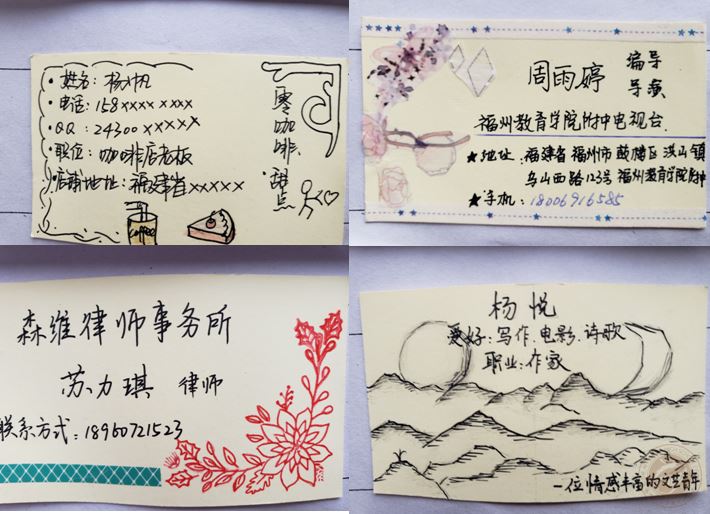 姓名：杨帆
电话：158xxxx xxxx
QQ：24300xxxxx
职位：咖啡店老板
店铺地址：福建省xxxxx
零咖啡.甜点
coffee
周雨婷 编导 导演
福州教育学院附中电视台.
★地址：福建省福州市鼓楼区洪山镇
乌山西路123号福州教育学院附中
★手机：18006916585
森维律师事务所
苏力琪 律师
联系方式：18960721523
杨悦
爱好：写作.电影.诗歌
职业：作家
一位情感丰富的文艺青年